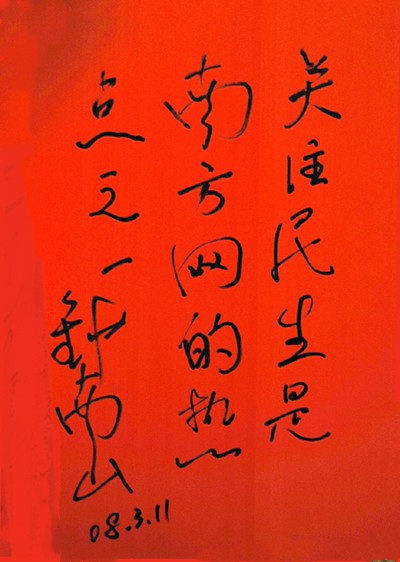 关注民生是
南方网的热
点之一
钟南山
08.3.11